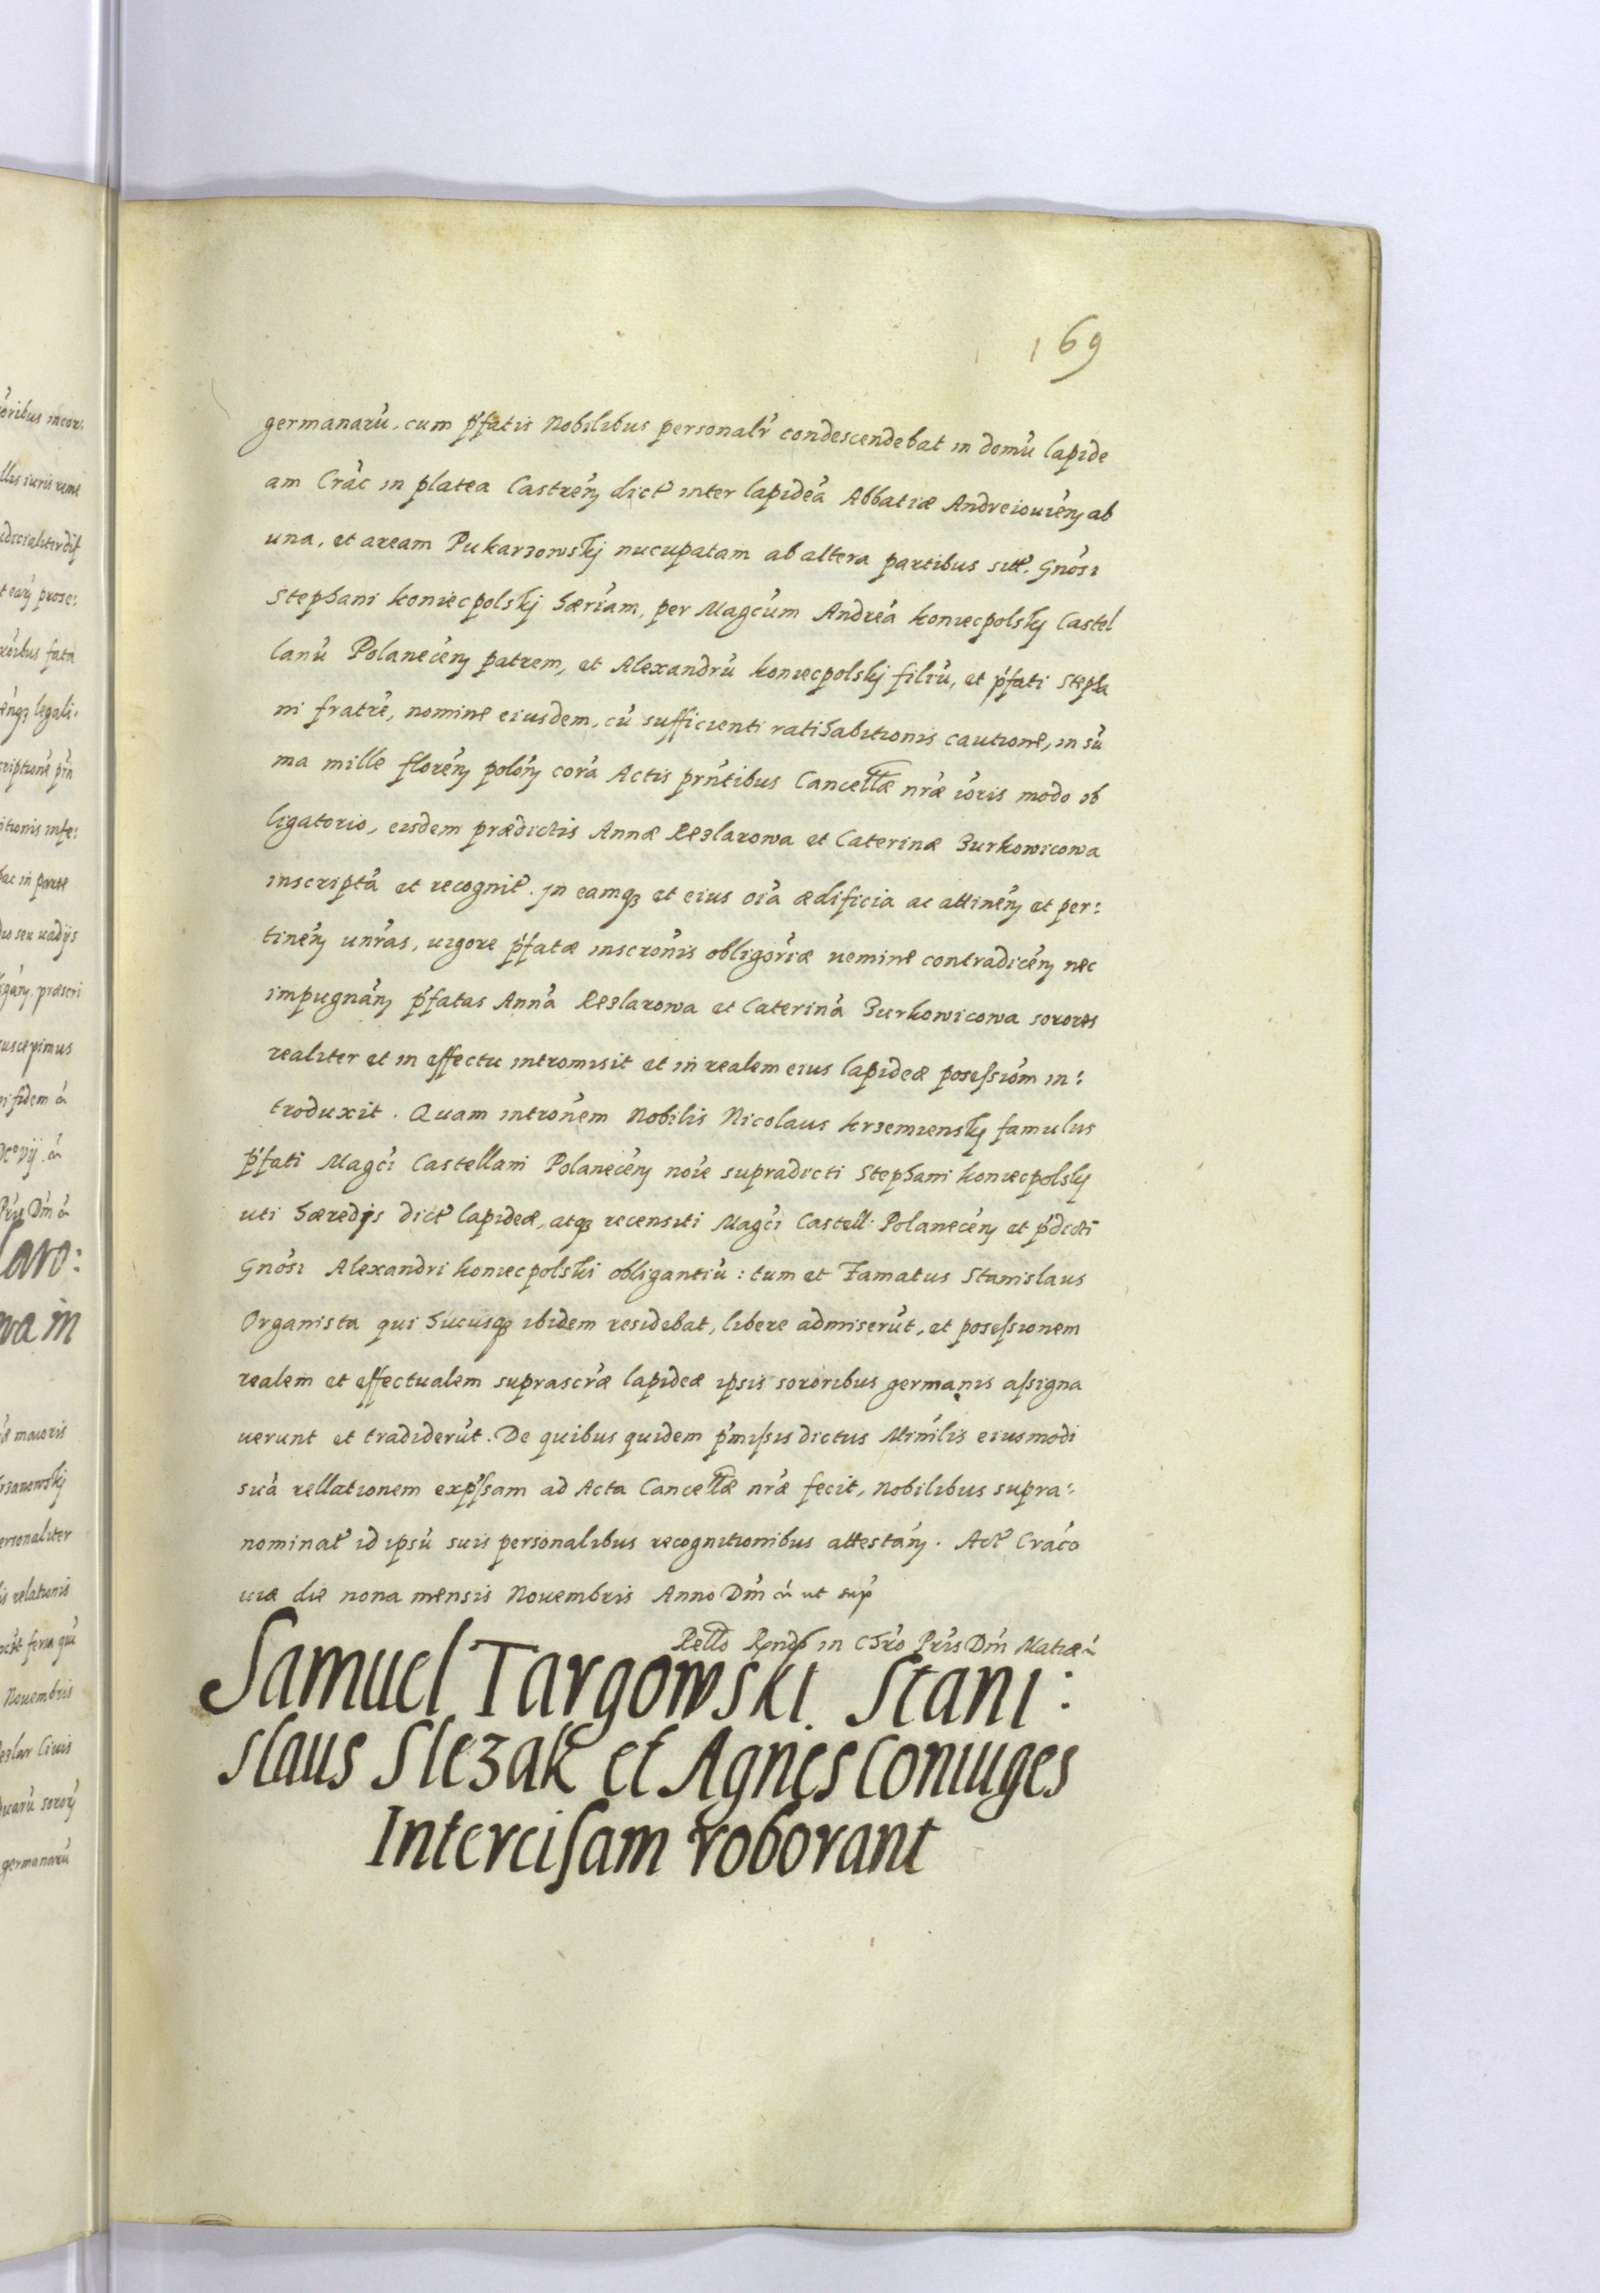 169
germanarũ, cum p̃fatis Nobilibus personalr̃ condescendebat in domũ lapide
am Crac̃ in platea Castreñ dict̃ inter lapideã Abbatiæ Andreiouieñ ab
una, et aream Pukarzowskj nucupatam ab altera partibus sitt̃. Gnõsi
Stephani koniecpolskj hæriam, per Magcũm Andreã koniecpolskj Castel
lanũ Polaneceñ patrem, et Alexandrũ koniecpolskj filiũ, et p̃fati Stepha
ni fratrẽ, nomine eiusdem, cũ sufficienti ratihabitionis cautione, in sũ
ma mille floreñ poloñ corã Actis prñtibus Cancellæ nr̃æ iõris modo ob
ligatorio, eisdem prædictis Annæ Rezlarowa et Caterinæ Burkowicowa
inscriptã et recognit̃. In eamq3 et eius oĩa ædificia ac attineñ et per:
tineñ unr̃as, uigore p̃fatæ inscrõnis obligorĩæ nemine contradiceñ nec
impugnañ p̃fatas Annã Rezlarowa et Caterinã Burkowicowa sorores
realiter et in effectu intromisit et in realem eius lapideæ posessiõm in:
troduxit. Quam introñem Nobilis Nicolaus krzemienskj famulus
p̃fati Magcĩ Castellani Polaneceñ noĩe supradicti Stephani koniecpolskj
uti hæredis dict̃ lapideæ, atq3 recensiti Magcĩ Castell: Polaneceñ et p̃dicti
Gnõsi Alexandri koniecpolski obligantiũ: tum et Famatus Stanislaus
Organista qui hucusq3 ibidem residebat, libere admiserũt, et posessionem
realem et effectualem suprascr̃æ lapideæ ipsis sororibus germanis assigna
uerunt et tradiderũt. De quibus quidem p̃missis dictus Minr̃lis eiusmodi
suã rellationem exp̃ssam ad Acta Cancellæ nr̃æ fecit, Nobilibus supra:
nominat̃ id ipsũ suis personalibus recognitionibus attestañ. Act̃ Craco
uiæ die nona mensis Nouembris Anno Dñi ut sup̃
in Chrõ Pr̃is Dñi
Samuel Targowski. Stani:
slaus Slezak et Agnes Coniuges
Intercisam roborant